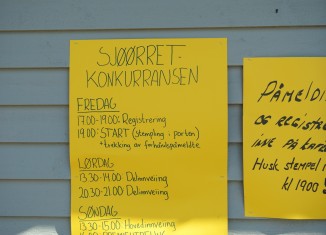 SJØØRRET-
KONKURRANSEN
FREDAG
17.00-19.00: Registrering
19.00: START (stempling i porten)
*trekking av forhåndspåmeldte
LØRDAG
13.30-14.00 Delinnveiing
20.30-21.00 Delinnveiing
SØNDAG
13.30-15.00 Hovedinnveiing
PÅMELDI
OG REGISTR
INNE PÅ
HUSK STEMPEL
kl 1900